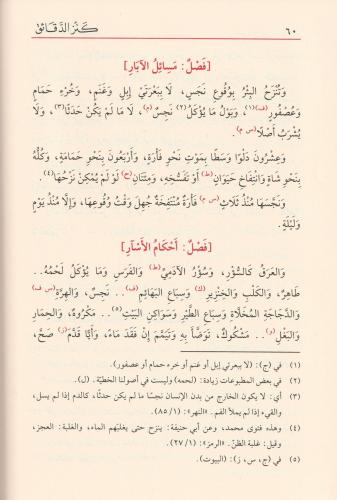 ٦٠ كَنْزُ الدَّقَائِقِ
[فَصْلٌ: مَسَائِلُ الآبَارِ]
وَتُنْزَحُ البِئْرُ بِوُقُوعِ نَجَسٍ، لَا بِبَعْرَتَيْ إِبِلٍ وَغَنَمٍ، وَخُرْءِ حَمَامٍ
وَعُصْفُورٍ(ف)(١)، وَبَوْلُ مَا يُؤْكَلُ(٢) نَجِسٌ(م)، لَا مَا لَمْ يَكُنْ حَدَثًا(٣)، وَلَا
يُشْرَبُ أَصْلًا(س م).
وَعِشْرُونَ دَلْوًا وَسَطًا بِمَوْتِ نَحْوِ فَأْرَةٍ، وَأَرْبَعُونَ بِنَحْوِ حَمَامَةٍ، وَكُلُّهُ
بِنَحْوِ شَاةٍ وَانْتِفَاخِ حَيَوَانٍ(ط) أَوْ تَفَسُّخِهِ، وَمِئَتَانِ(ح) لَوْ لَمْ يُمْكِنْ نَزْحُهَا(٤).
وَنَجَّسَهَا مُنْذُ ثَلَاثٍ(س م) فَأْرَةٌ مُنْتَفِخَةٌ جُهِلَ وَقْتُ وُقُوعِهَا، وَإِلَّا مُنْذُ يَوْمٍ
وَلَيْلَةٍ.
[فَصْلٌ: أَحْكَامُ الأَسْآرِ]
وَالعَرَقُ كَالسُّؤْرِ، وَسُؤْرُ الآدَمِيِّ(ط) وَالفَرَسِ وَمَا يُؤْكَلُ لَحْمُهُ..
طَاهِرٌ، وَالكَلْبِ وَالخِنْزِيرِ(ك) وَسِبَاعِ البَهَائِمِ(ف).. نَجِسٌ، وَالهِرَّةِ(س ف)
وَالدَّجَاجَةِ المُخَلَّاةِ وَسِبَاعِ الطَّيْرِ وَسَوَاكِنِ البَيْتِ(٥).. مَكْرُوهٌ، وَالحِمَارِ
وَالبَغْلِ(و).. مَشْكُوكٌ، تَوَضَّأَ بِهِ وَتَيَمَّمَ إِنْ فَقَدَ مَاءً، وَأَيًّا قَدَّمَ(ز) صَحَّ،
(١) في (ج): (لا ببعرتي إبل أو غنم أو خرء حمام أو عصفور).
(٢) في بعض المطبوعات زيادة: (لحمه) وليست في أصولنا الخطيّة. (ل).
(٣) أي: لا يكون الخارج من بدن الإنسان نجسًا ما لم يكن حدثًا، كالدم إذا لم يسل،
والقيء إذا لم يملأ الفم. «النهر»: (١/ ٨٥).
(٤) وهذه فتوى محمد، وعن أبي حنيفة: ينزح حتى يغلبهم الماء، والغلبة: العجز،
وقيل: غلبة الظنّ. «الرمز»: (١/ ٢٧).
(٥) في (ج، س، ز): (البيوت).